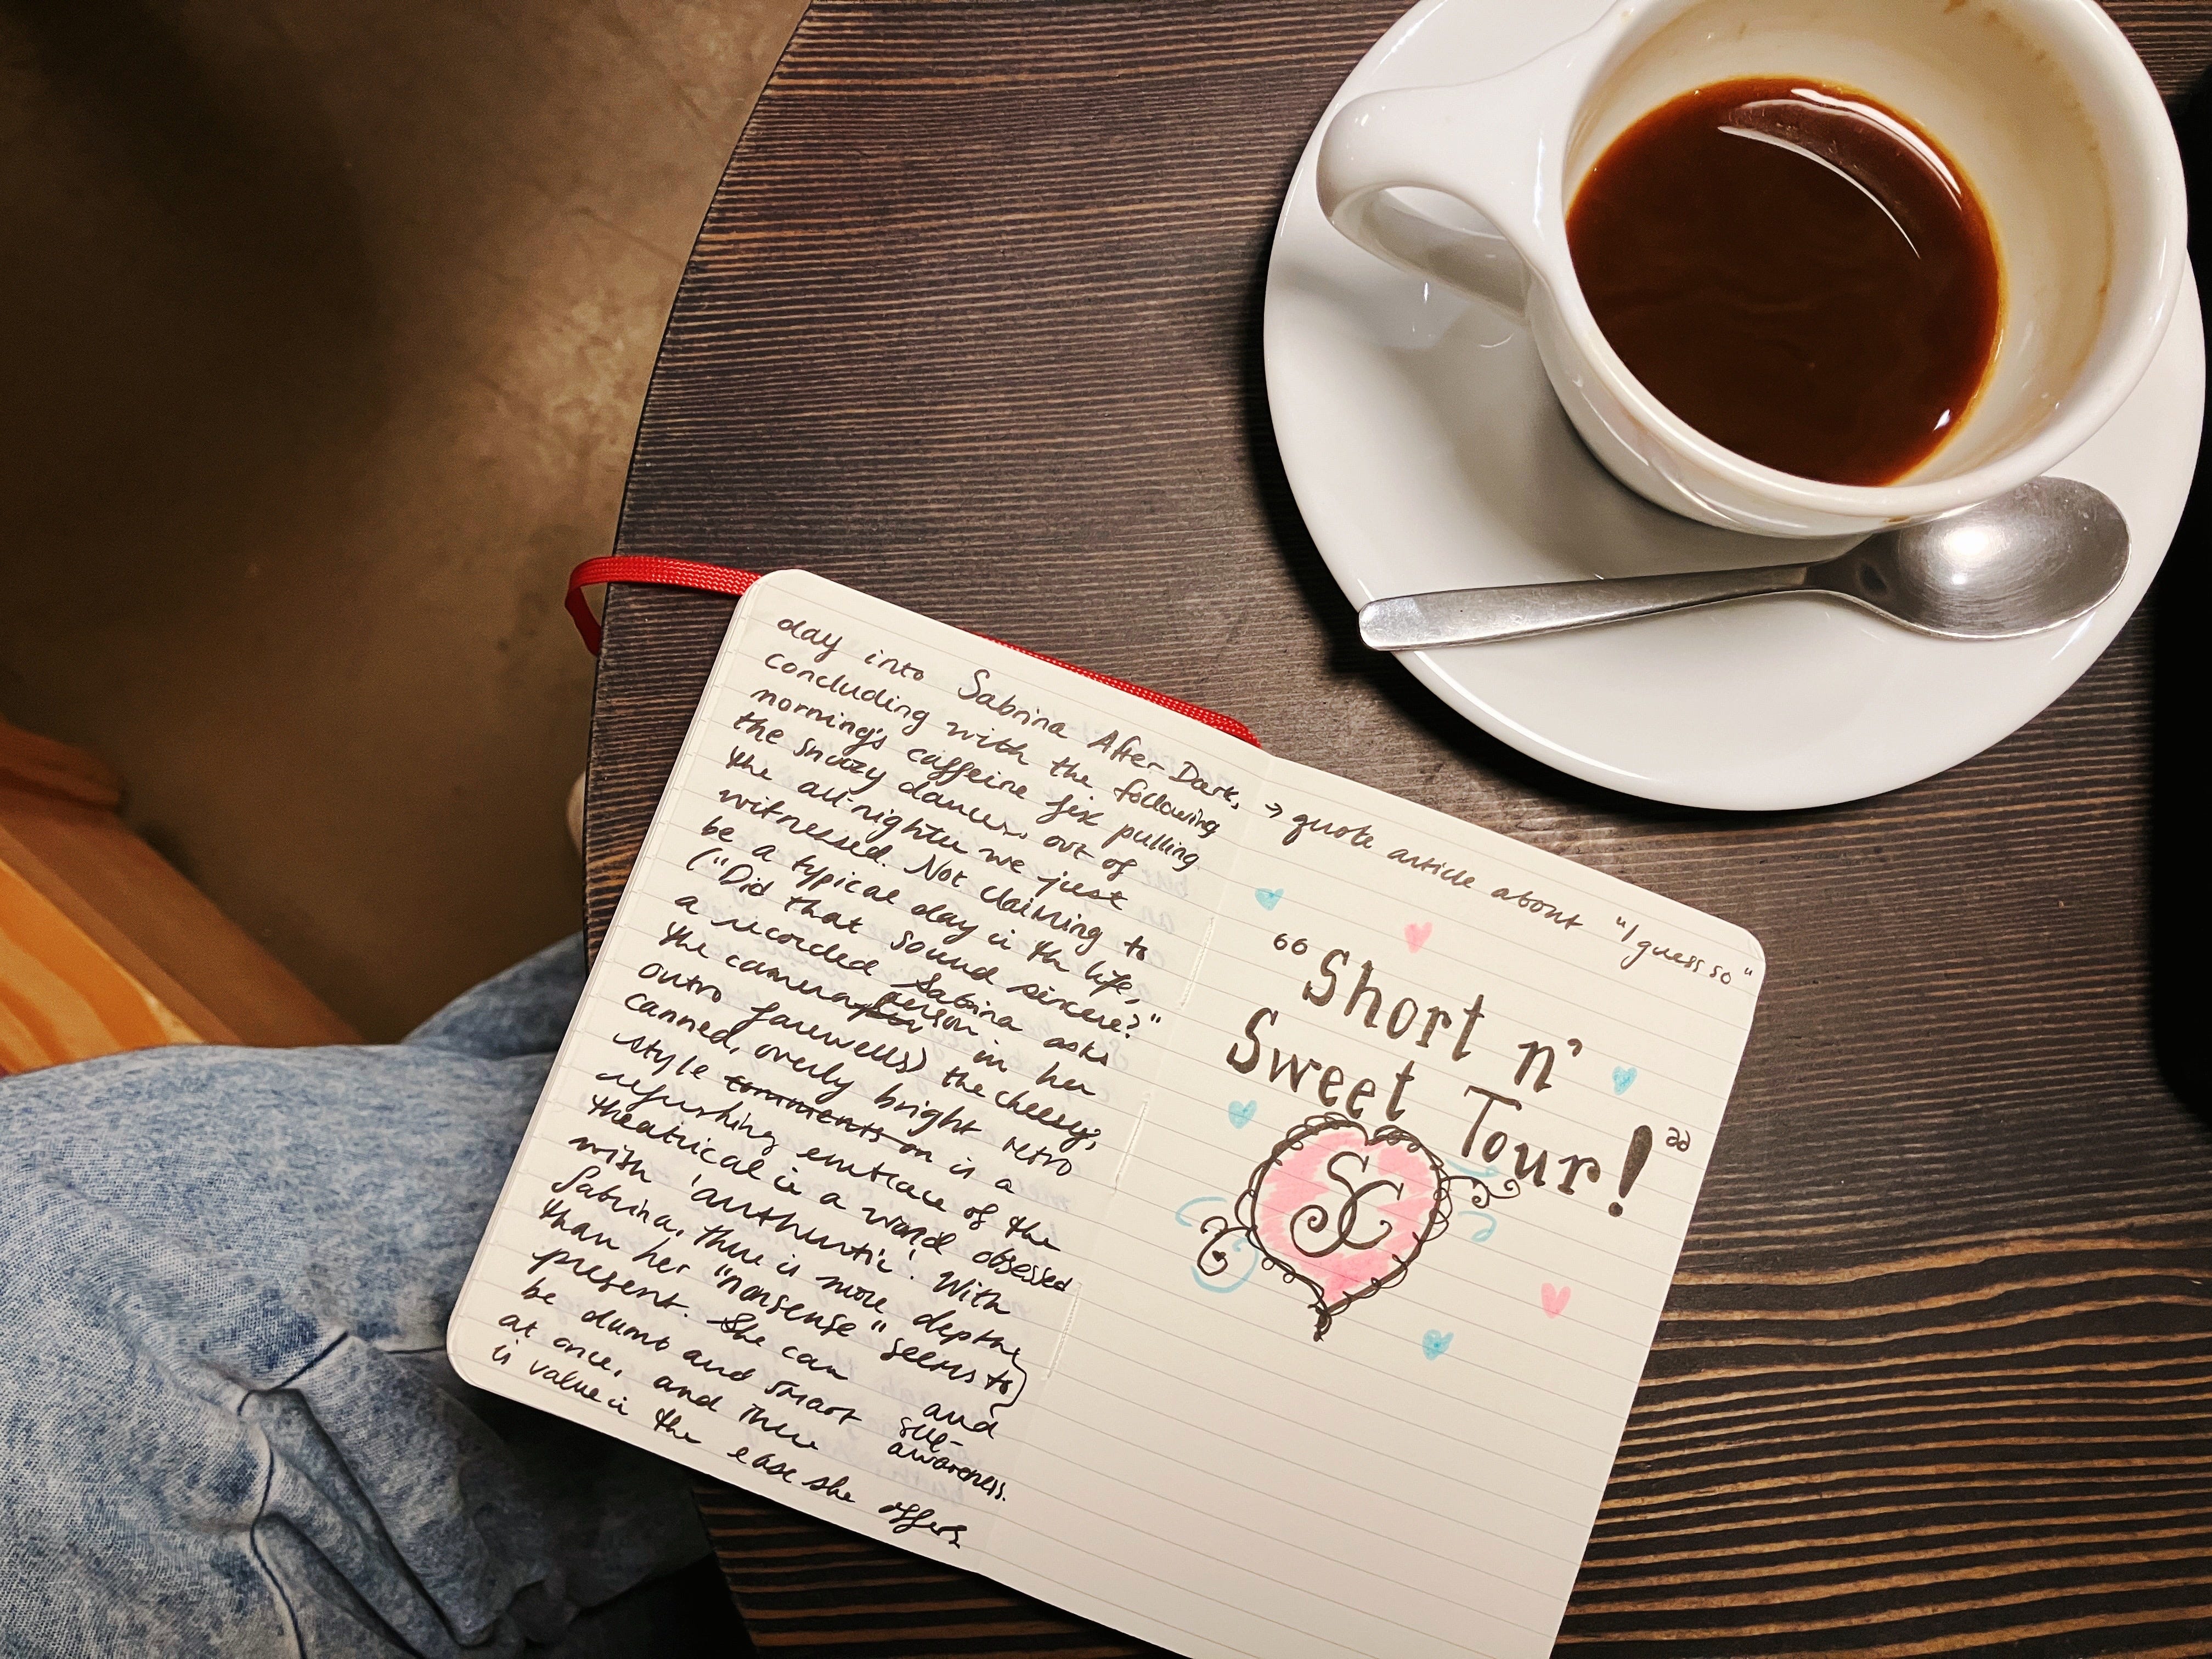 day into Sabrina After-Dark,
concluding with the following
morning's caffeine fix pulling
the snoozy dancers out of
the all-nighter we just
witnessed. Not claiming to
be a typical day in the life,
("Did that sound sincere?"
a recorded Sabrina asks
the camera person in her
outro farewells) the cheesy,
canned, overly bright retro
style comments on is a
refreshing embrace of the
theatrical in a world obsessed
with 'authentic'. With
Sabrina, there is more depth
than her "nonsense" seems to
present. She can and
be dumb and smart self-
at once, and there awareness.
is value in the ease she offers
→ quote article about "I guess so"
"Short n'
Sweet Tour!"
SC